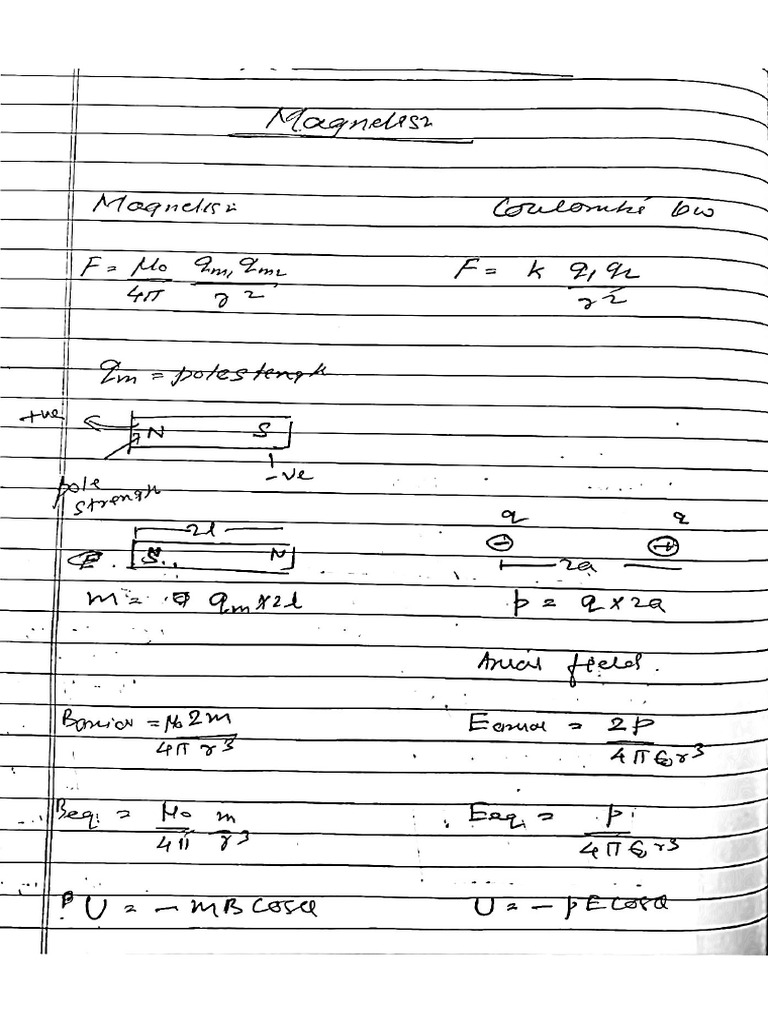 Magnetism
Magnetism Coulomb's law
F = μ₀/4π qm₁ qm₂/r² F = k q₁ q₂/r²
qm = pole strength
+ve N S
-ve
pole
strength
2l q q
S N - + 2a
m = qm × 2l p = q × 2a
Axial field.
Baxial = μ₀ 2m/4π r³ Eaxial = 2p/4π ε₀ r³
Beq. = μ₀/4π m/r³ Eeq. = p/4π ε₀ r³
U = - mB cosθ U = - pE cosθ